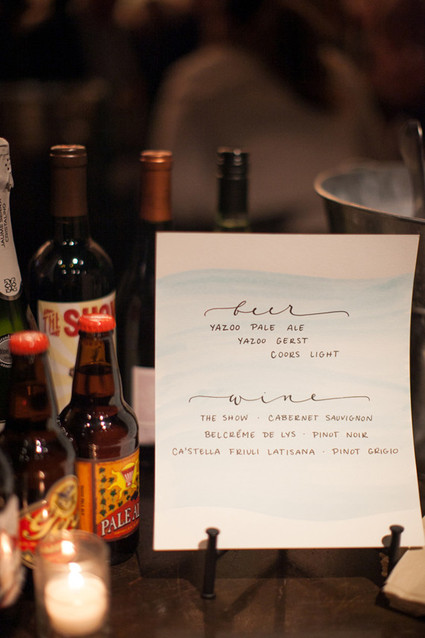 JAUME SERRA
CRISTALINO
THE SHOW
PALE A
beer
YAZOO PALE ALE
YAZOO GERST
COORS LIGHT
wine
THE SHOW · CABERNET SAUVIGNON
BELCRÉME DE LYS · PINOT NOIR
CA'STELLA FRIULI LATISANA · PINOT GRIGIO